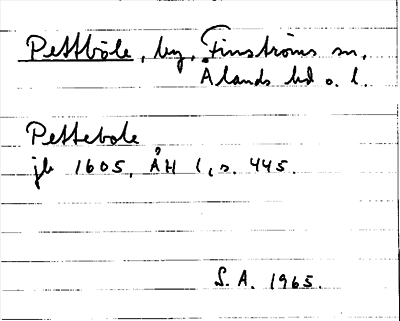 Pettböle, by, Finströms sn,
Ålands hd o. l.
Pettebole
jb 1605, ÅH 1, s. 445.
S. A. 1965.